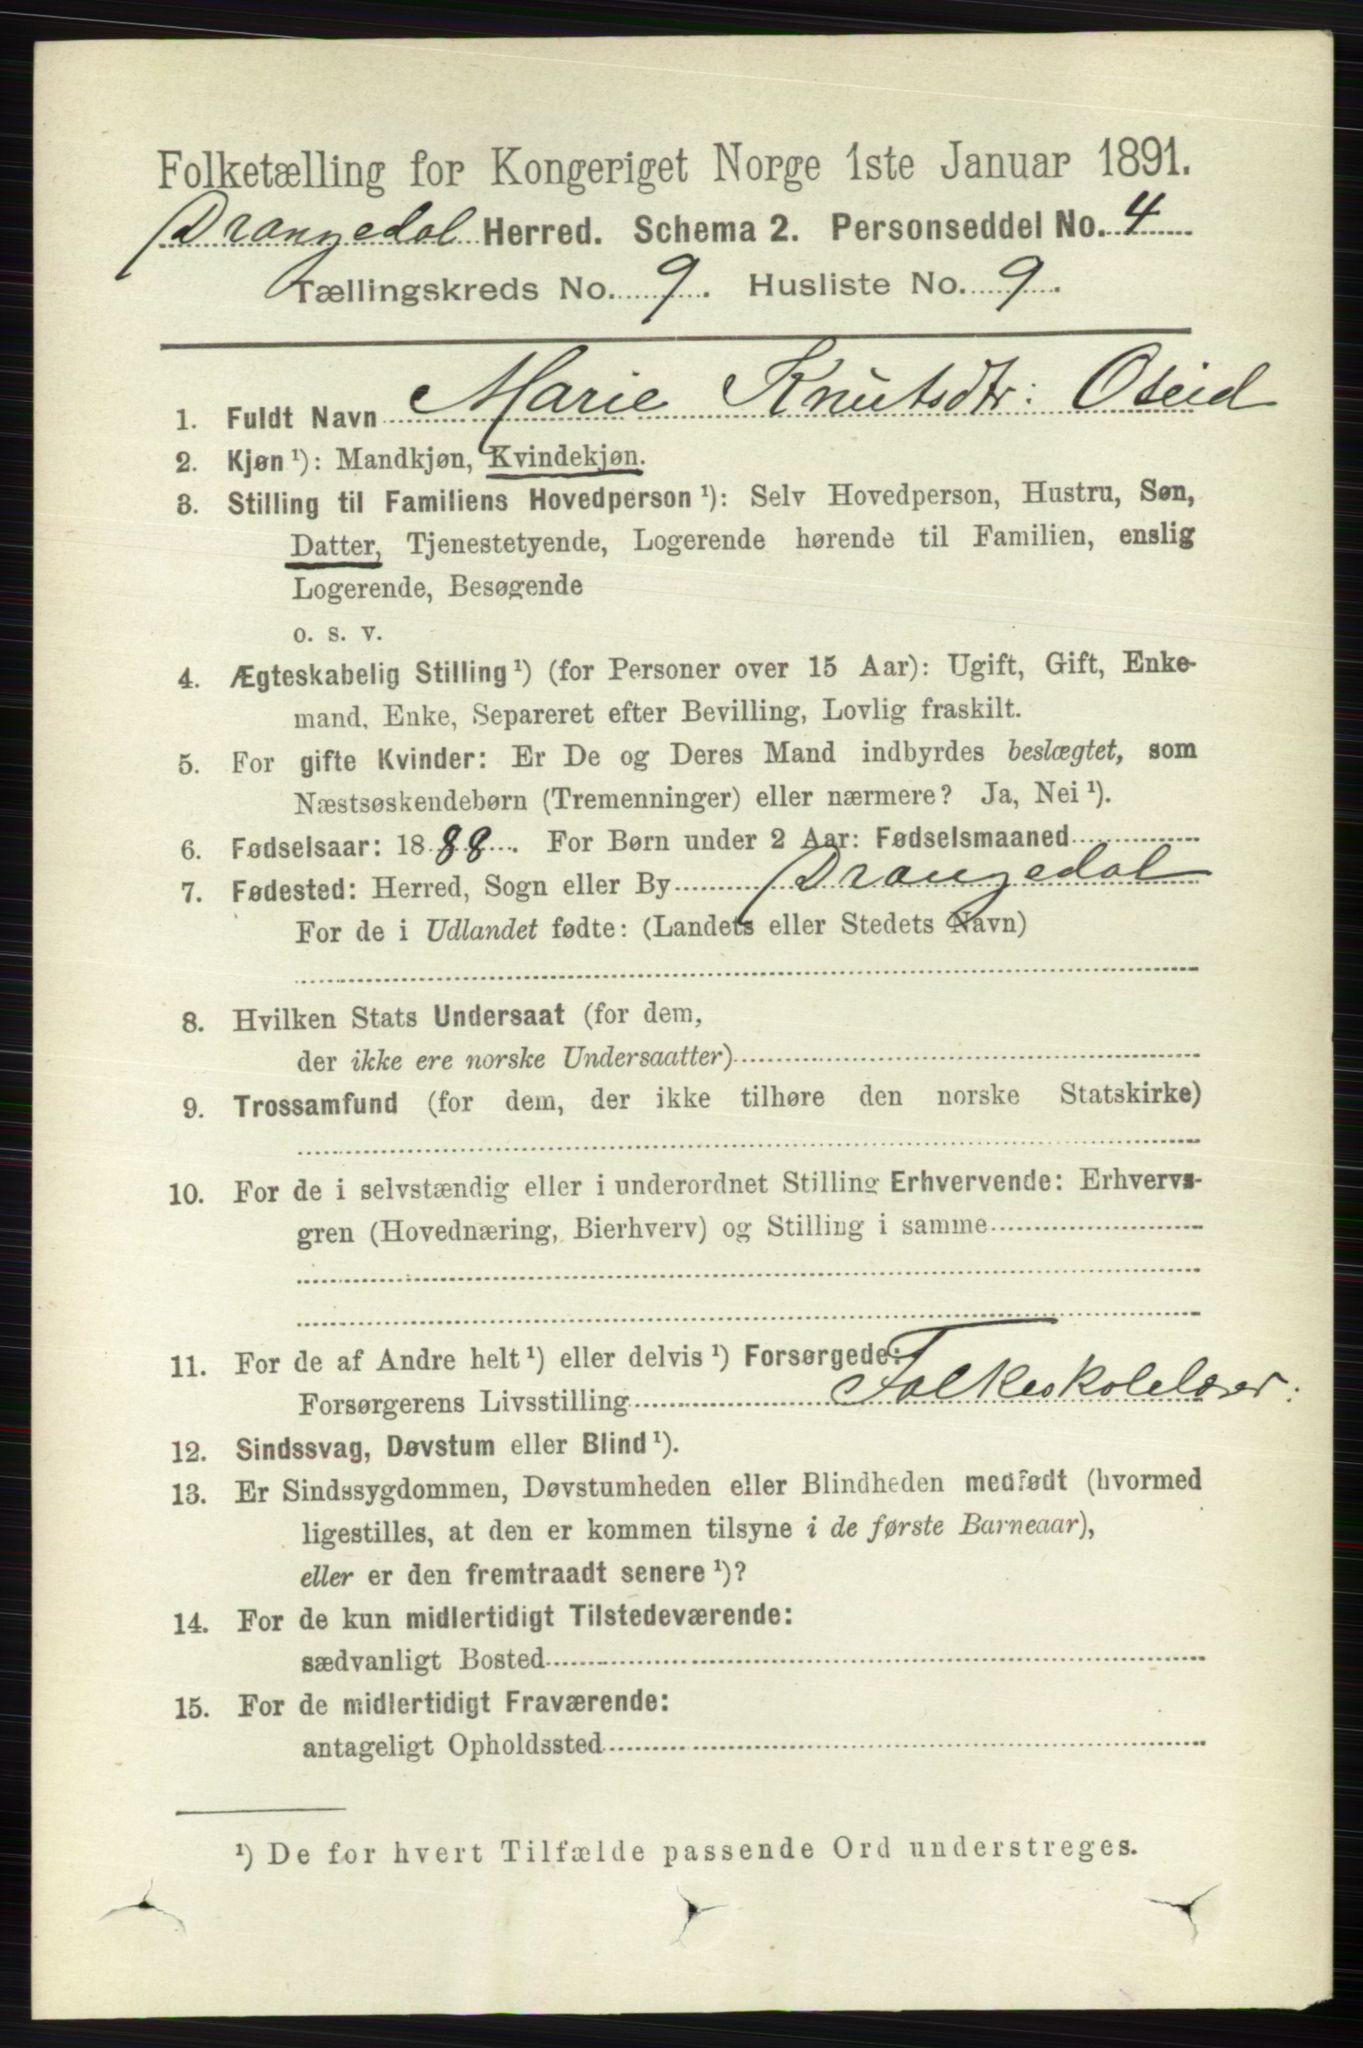 Folketælling for Kongeriget Norge 1ste Januar 1891.
Drangedal Herred. Schema 2. Personseddel No. 4
Tællingskreds No. 9. Husliste No. 9.
1. Fuldt Navn Marie Knutsdtr: Oseid
2. Kjøn ¹): Mandkjøn, Kvindekjøn.
3. Stilling til Familiens Hovedperson ¹): Selv Hovedperson, Hustru, Søn,
Datter, Tjenestetyende, Logerende hørende til Familien, enslig
Logerende, Besøgende
o. s. v.
4. Ægteskabelig Stilling ¹) (for Personer over 15 Aar): Ugift, Gift, Enke-
mand, Enke, Separeret efter Bevilling, Lovlig fraskilt.
5. For gifte Kvinder: Er De og Deres Mand indbyrdes beslægtet, som
Næstsøskendebørn (Tremenninger) eller nærmere? Ja, Nei ¹).
6. Fødselsaar: 1888. For Børn under 2 Aar: Fødselsmaaned
7. Fødested: Herred, Sogn eller By Drangedal
For de i Udlandet fødte: (Landets eller Stedets Navn)
8. Hvilken Stats Undersaat (for dem,
der ikke ere norske Undersaatter)
9. Trossamfund (for dem, der ikke tilhøre den norske Statskirke)
10. For de i selvstændig eller i underordnet Stilling Erhvervende: Erhvervs-
gren (Hovednæring, Bierhverv) og Stilling i samme
11. For de af Andre helt ¹) eller delvis ¹) Forsørgede:
Forsørgerens Livsstilling Folkeskolelærer:
12. Sindssvag, Døvstum eller Blind ¹).
13. Er Sindssygdommen, Døvstumheden eller Blindheden medfødt (hvormed
ligestilles, at den er kommen tilsyne i de første Barneaar),
eller er den fremtraadt senere ¹)?
14. For de kun midlertidigt Tilstedeværende:
sædvanligt Bosted
15. For de midlertidigt Fraværende:
antageligt Opholdssted
¹) De for hvert Tilfælde passende Ord understreges.